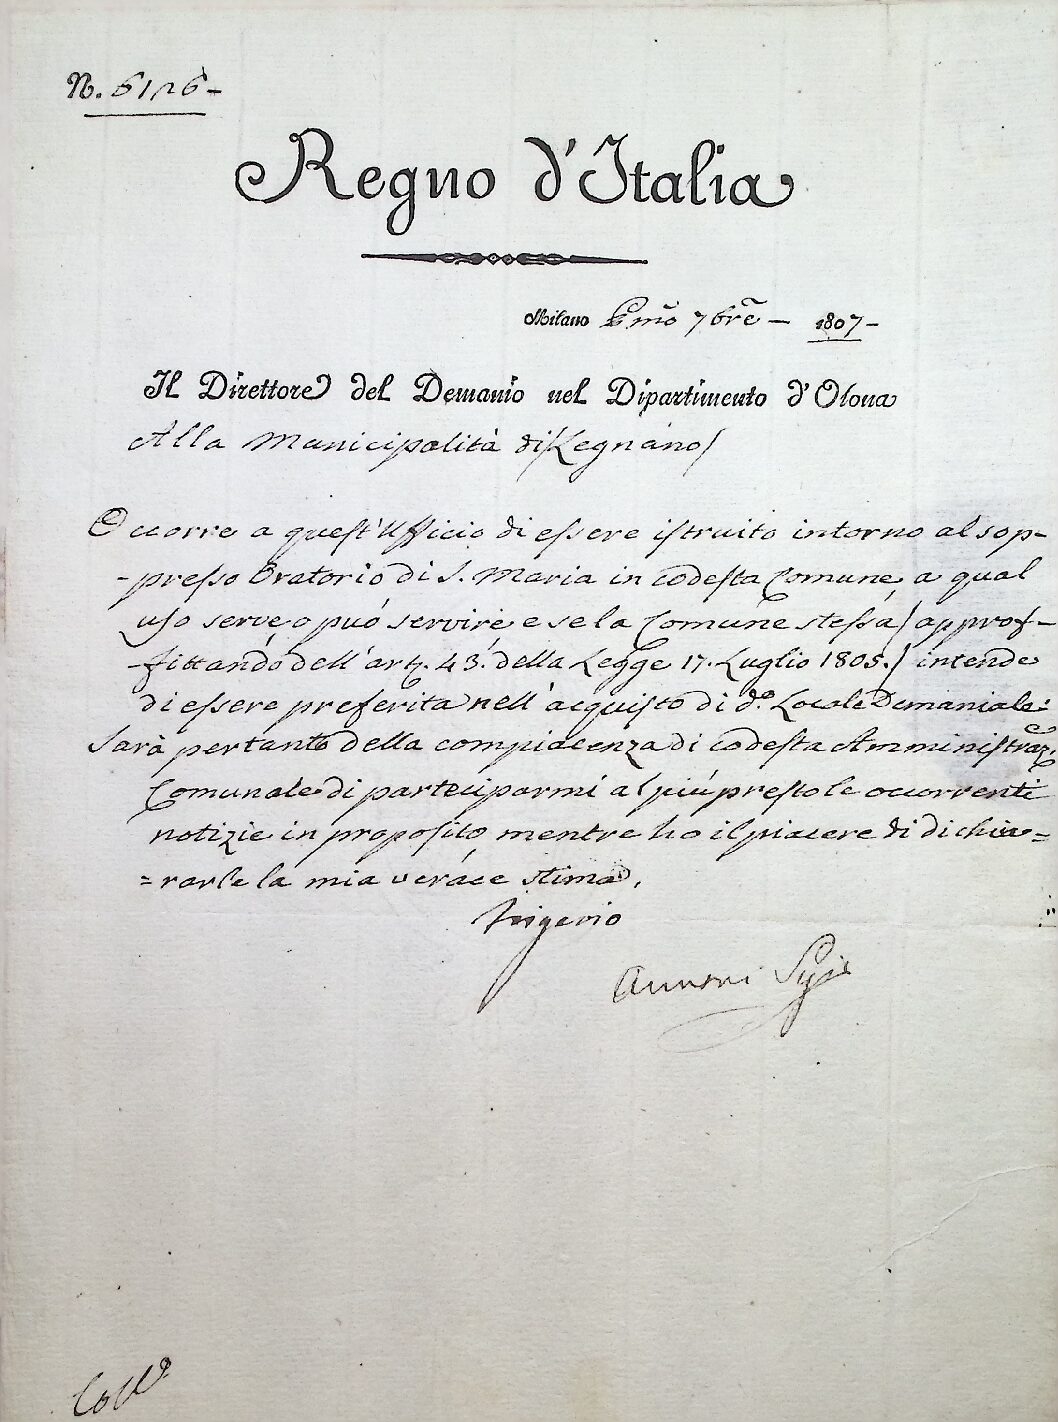 N. 6126 -
Regno d'Italia
Milano Pmo 7bre - 1807 -
Il Direttore del Demanio nel Dipartimento d'Olona
Alla Municipalità di Legnano
Occorre a quest'Ufficio di essere istruito intorno al sop-
-presso Oratorio di S. Maria in codesta Comune, a qual
uso serve, o può servire e se la Comune stessa / approf-
-fittando dell'art. 43. della Legge 17. Luglio 1805. / intende
di essere preferita nell'acquisto di do. Locale Demaniale:
Sarà pertanto della compiacenza di codesta Amministraze.
Comunale di parteciparmi al più presto le occorrenti
notizie in proposito, mentre ho il piacere di dichia=
=rarle la mia verace stima.
Frigerio
Annoni